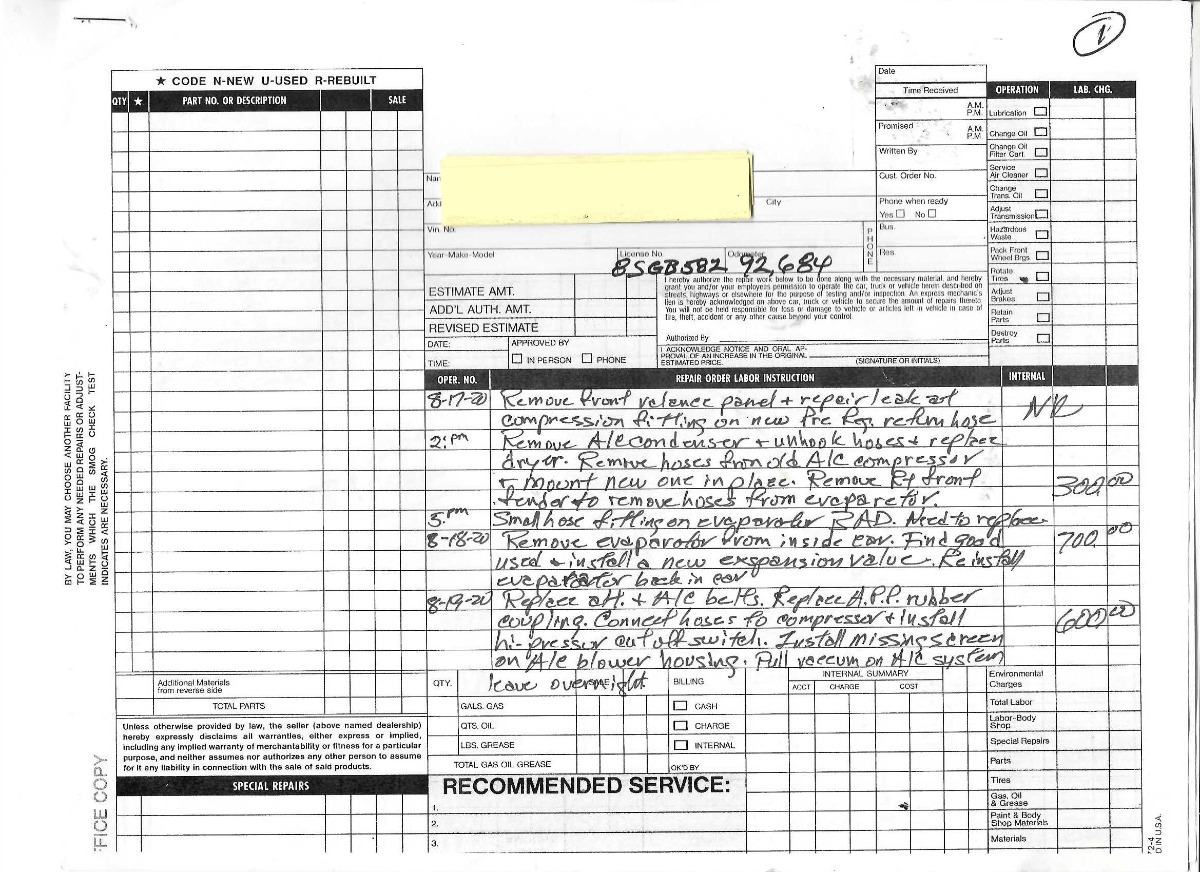 1
★ CODE N-NEW U-USED R-REBUILT
QTY ★ PART NO. OR DESCRIPTION SALE
Date
Time Received
A.M.
P.M.
Promised
A.M.
P.M.
Written By
Cust. Order No.
Phone when ready
Yes No
PHONE
Bus.
Res.
OPERATION LAB. CHG.
Lubrication
Change Oil
Change Oil
Filter Cart.
Service
Air Cleaner
Change
Trans. Oil
Adjust
Transmission
Hazardous
Waste
Pack Front
Wheel Brgs.
Rotate
Tires
Adjust
Brakes
Retain
Parts
Destroy
Parts
City
Vin. No.
Year-Make-Model License No. Odometer
8SGB582 92,684
ESTIMATE AMT.
ADD'L AUTH. AMT.
REVISED ESTIMATE
DATE: APPROVED BY
TIME: IN PERSON PHONE
I hereby authorize the repair work below to be done along with the necessary material, and hereby
grant you and/or your employees permission to operate the car, truck or vehicle herein described on
streets, highways or elsewhere for the purpose of testing and/or inspection. An express mechanic's
lien is hereby acknowledged on above car, truck or vehicle to secure the amount of repairs thereto.
You will not be held responsible for loss or damage to vehicle or articles left in vehicle in case of
fire, theft, accident or any other cause beyond your control.
Authorized By
I ACKNOWLEDGE NOTICE AND ORAL AP-
PROVAL OF AN INCREASE IN THE ORIGINAL
ESTIMATED PRICE. (SIGNATURE OR INITIALS)
OPER. NO. REPAIR ORDER LABOR INSTRUCTION INTERNAL
8-17-20 Remove front valance panel + repair leak at
compression fitting on new Pre Reg. return hose
2:pm Remove A/C condenser + unhook hoses + replace
dryer. Remove hoses from old A/C compressor
+ mount new one in place. Remove Rt front 300.00
fender to remove hoses from evaparetor.
5:pm Small hose fitting on evaporator BAD. Need to replace
8-18-20 Remove evaporator from inside car. Find good 700.00
used + install a new exspansion valve. Reinstall
evaparator back in car
8-19-20 Replace alt. + A/C belts. Replace A.P.P. rubber
coupling. Connect hoses to compressor + install 600.00
hi-pressor cut off switch. Install missing screen
on A/C blower housing. Pull vaccum on A/C system
leave overnight.
BY LAW, YOU MAY CHOOSE ANOTHER FACILITY
TO PERFORM ANY NEEDED REPAIRS OR ADJUST-
MENTS WHICH THE SMOG CHECK TEST
INDICATES ARE NECESSARY.
Additional Materials
from reverse side
TOTAL PARTS
Unless otherwise provided by law, the seller (above named dealership)
hereby expressly disclaims all warranties, either express or implied,
including any implied warranty of merchantability or fitness for a particular
purpose, and neither assumes nor authorizes any other person to assume
for it any liability in connection with the sale of said products.
SPECIAL REPAIRS
QTY. BILLING
GALS. GAS CASH
QTS. OIL CHARGE
LBS. GREASE INTERNAL
TOTAL GAS OIL GREASE OK'D BY
INTERNAL SUMMARY
ACCT CHARGE COST
RECOMMENDED SERVICE:
1.
2.
3.
Environmental
Charges
Total Labor
Labor-Body
Shop
Special Repairs
Parts
Tires
Gas, Oil
& Grease
Paint & Body
Shop Materials
Materials
FFICE COPY
D IN U.S.A.